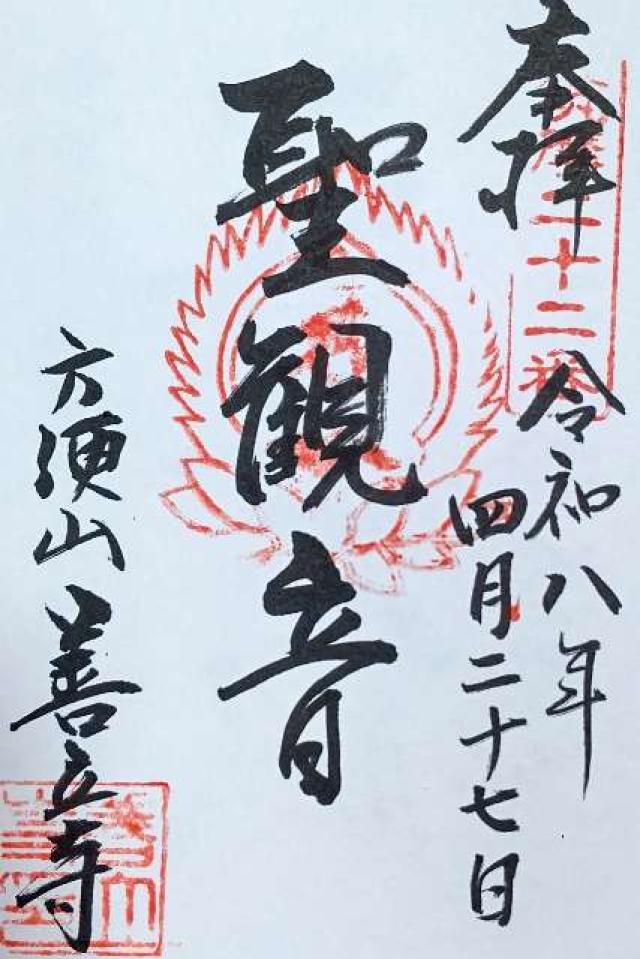 奉拝
十二番
令和八年
四月二十七日
聖観音
山 善立寺